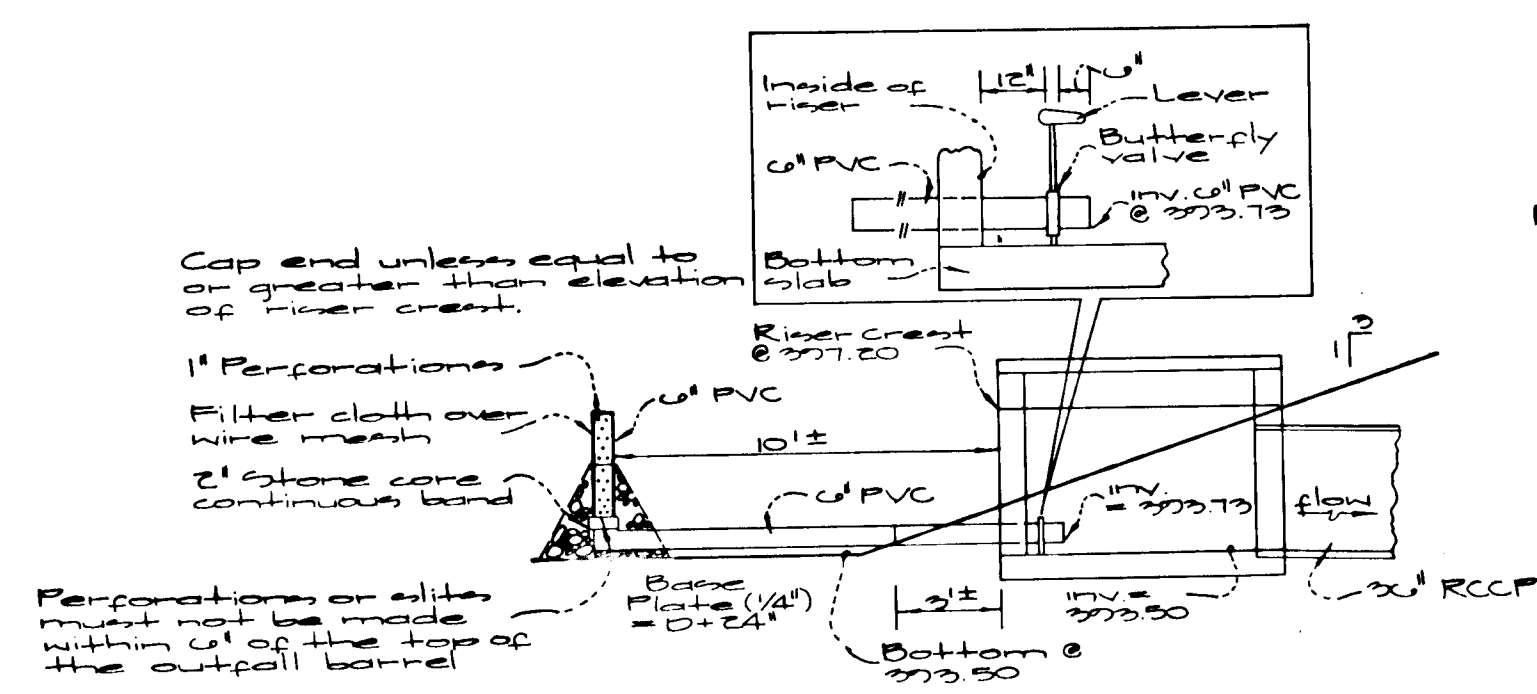 Inside of
riser
12"
6"
Lever
Butterfly
valve
6" PVC
inv. 6" PVC
@ 393.73
Bottom
slab
Cap end unless equal to
or greater than elevation
of riser crest.
Riser Crest
@ 397.20
3
1
1" Perforations
6" PVC
Filter cloth over
wire mesh
10'±
2" Stone core
continuous band
6" PVC
inv.
= 393.73
flow
Perforations or slits
must not be made
within 6" of the top of
the outfall barrel
Base
Plate (1/4")
= D+24"
3'±
inv. =
393.50
36" RCCP
Bottom @
393.50